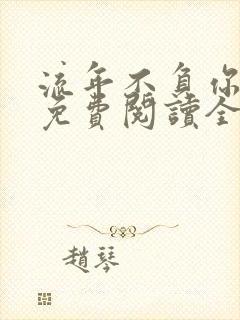 流年不負你
免費閱讀全
趙琴